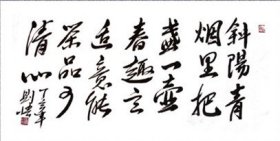 斜陽青
烟里把
盞一壺
春趣言
适意能
茶品可
清心
丁亥年